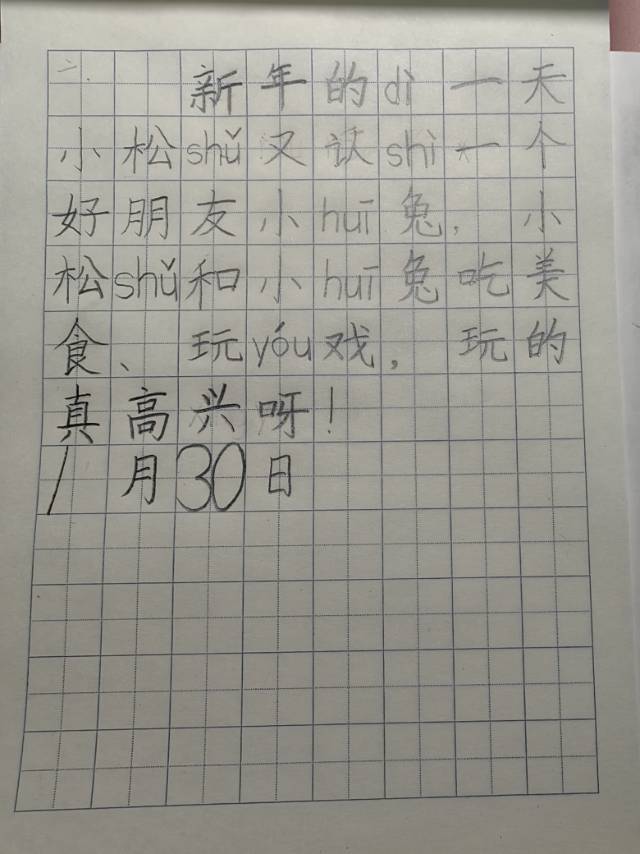 二、
新年的dì一天
小松shǔ又认shi一个
好朋友小huī兔，小
松shǔ和小huī兔吃美
食、玩yóu戏，玩的
真高兴呀！
1月30日